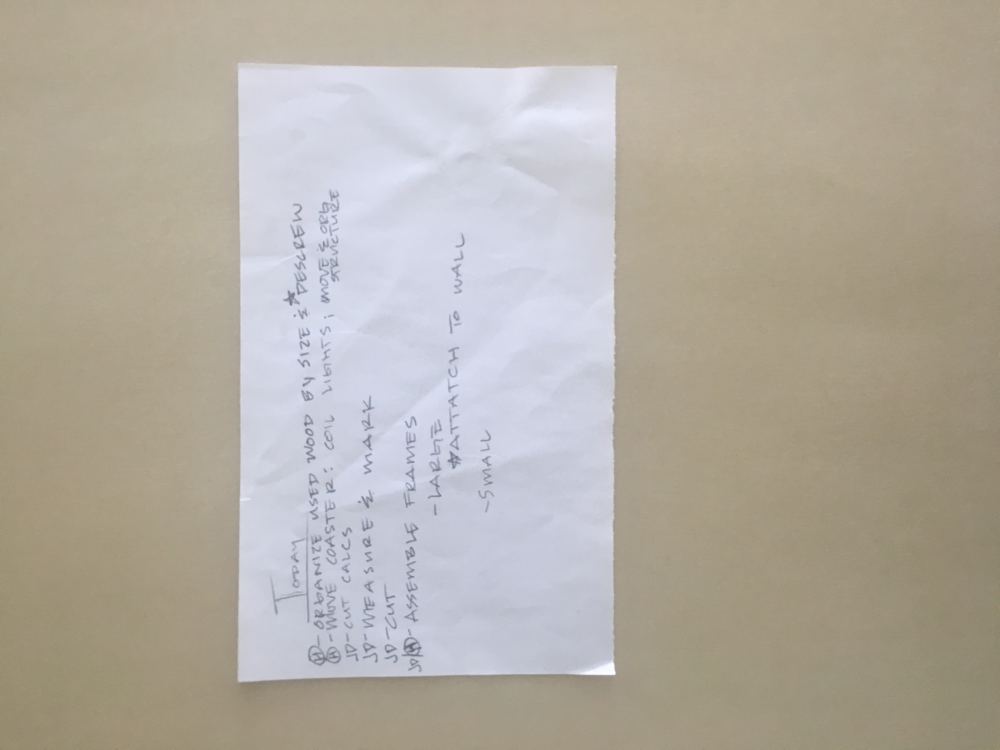 TODAY
(H)- ORGANIZE USED WOOD BY SIZE & *DESCREW
(H)- MOVE COASTER: COIL LIGHTS; MOVE & ORG STRUCTURE
JD- CUT CALCS
JD- MEASURE & MARK
JD- CUT
JD/(H)- ASSEMBLE FRAMES
- LARGE
*ATTATCH TO WALL
- SMALL